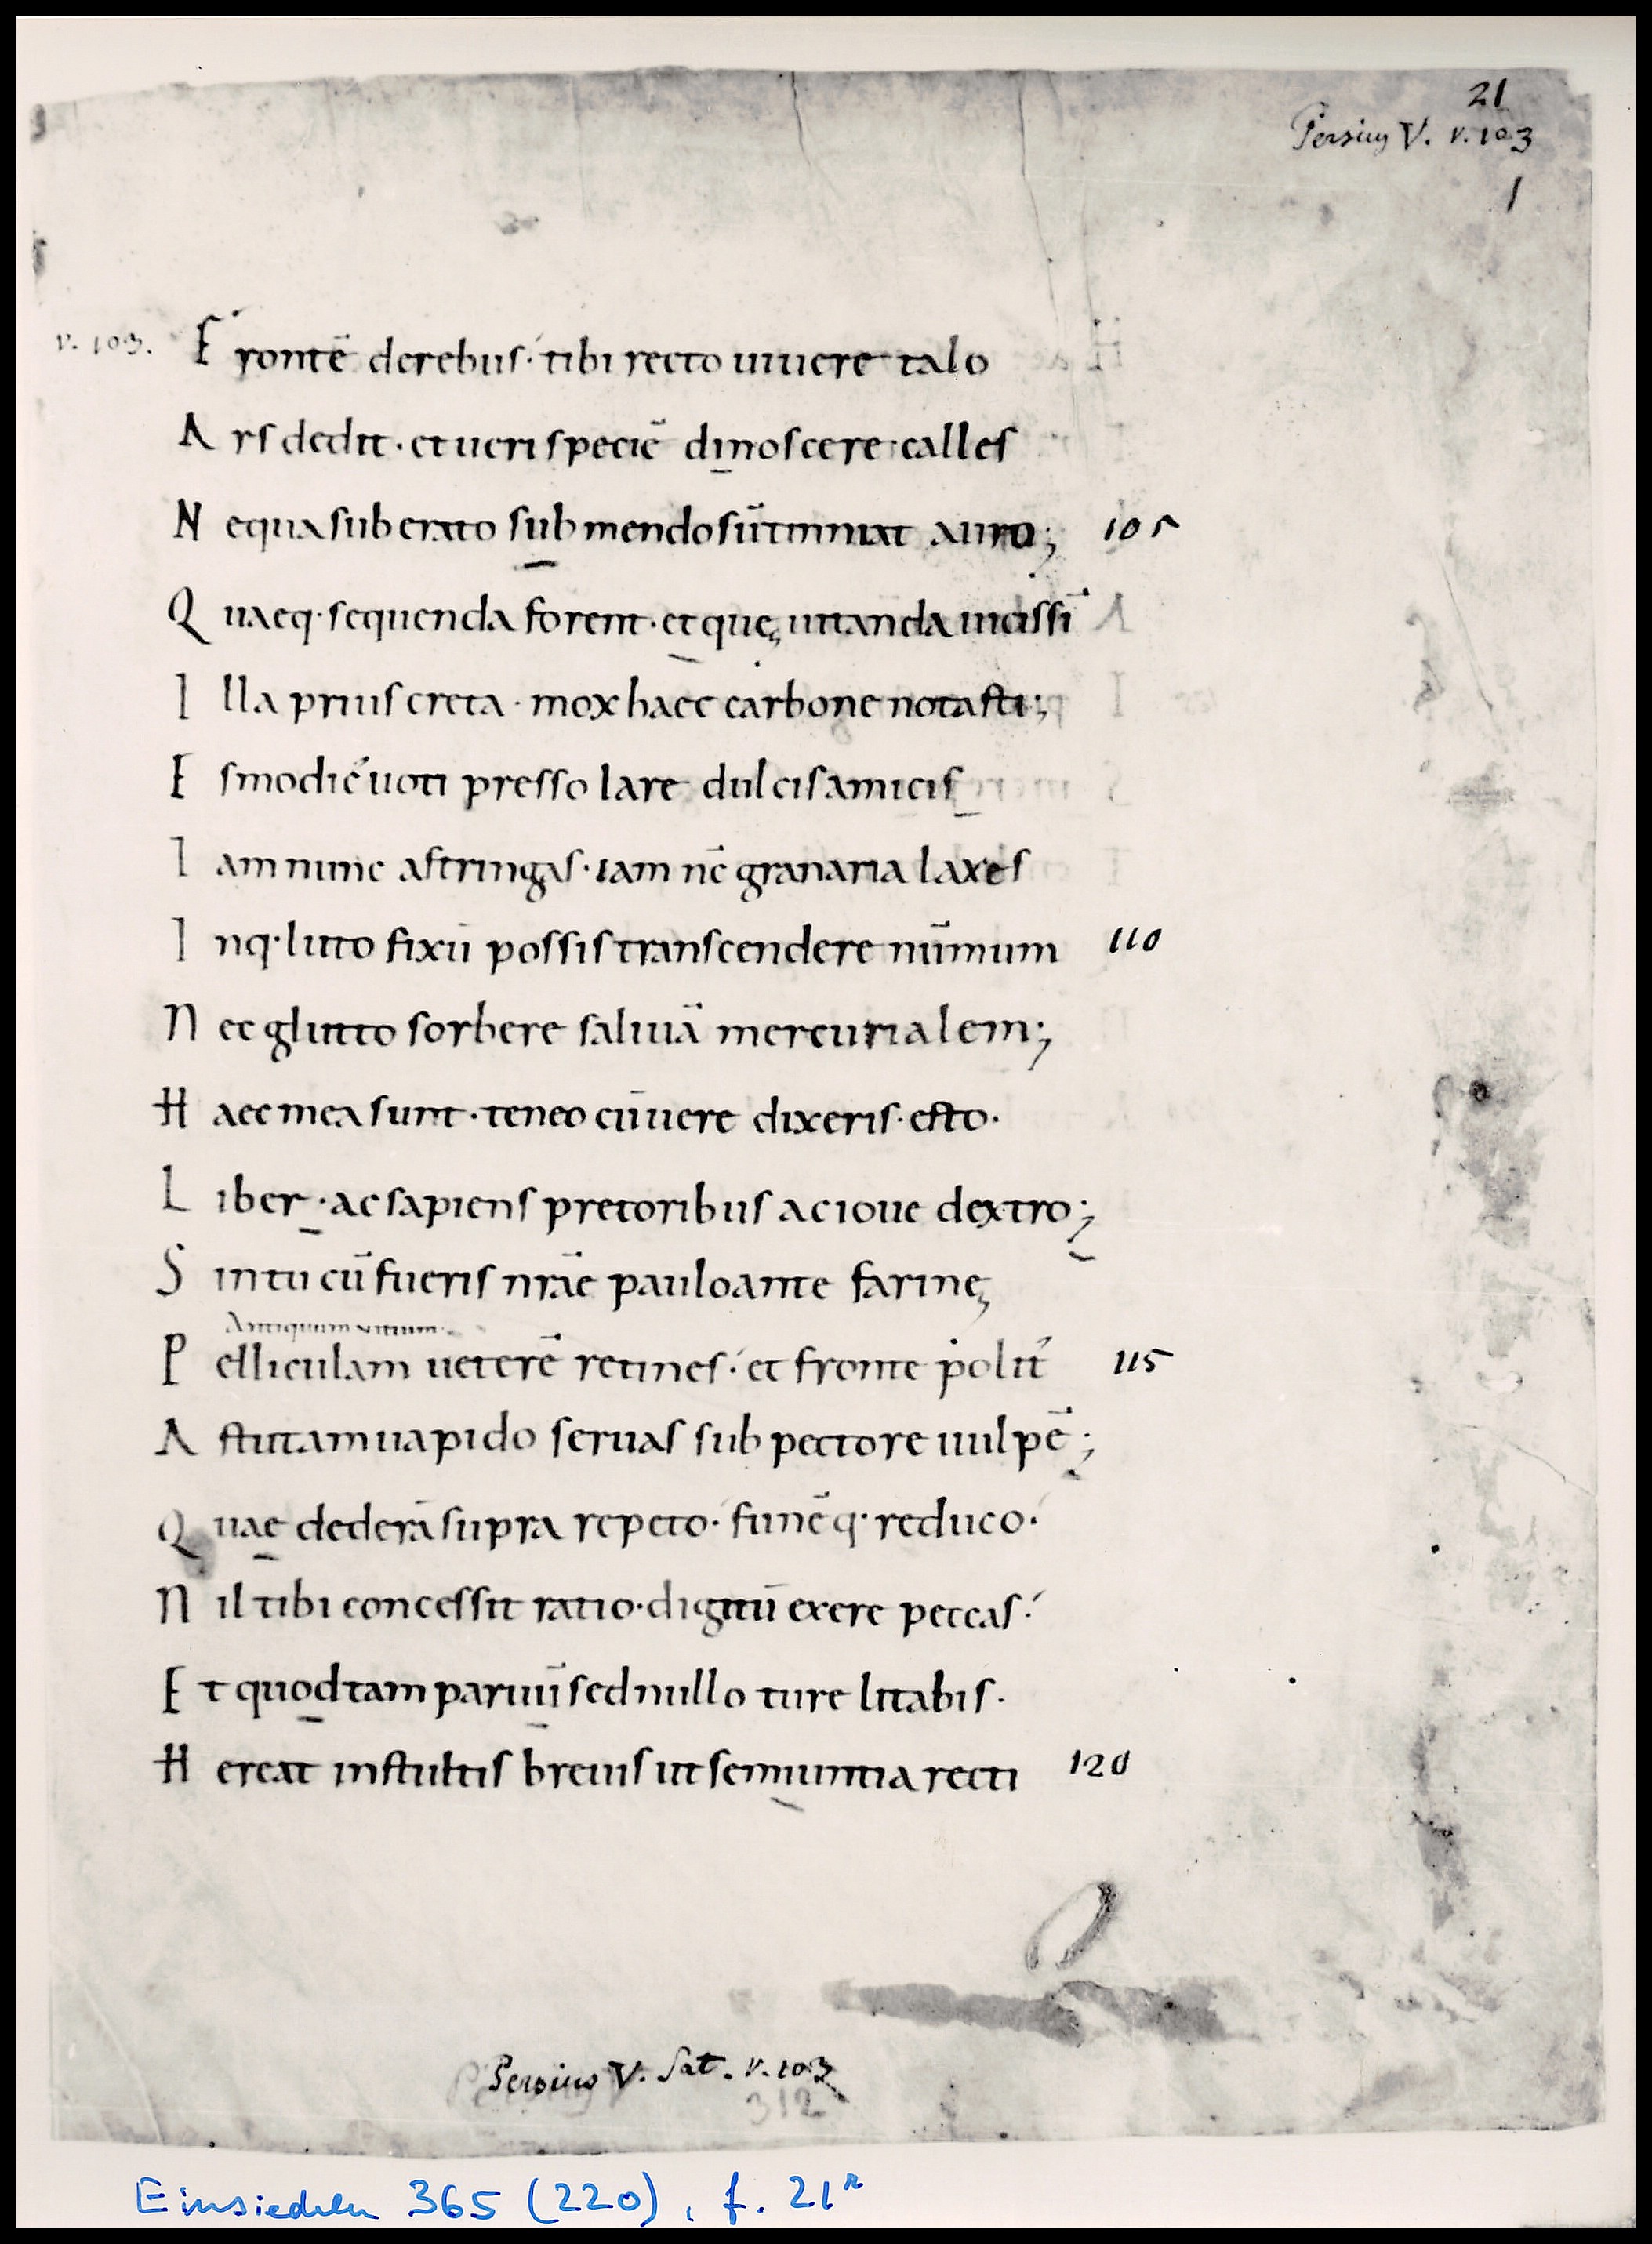 21
Persius V. v. 103
1
v. 103. F rontē derebus· tibi recto uiuere talo
A rs dedit· et ueri speciē dinoscere calles
N equa suberato sub mendosūtinniat auro; 105
Q uaeq· sequenda forent· et que uitanda uicissī
I lla prius creta· mox haec carbone notasti;
E s modic' uoti presso lare dulcis amicis
I am nunc astringas· iam nc̄ granaria laxes
I nq· luto fixū possis transcendere nūmum 110
N ec glutto sorbere saliuā mercurialem;
H aec mea sunt· teneo cū uere dixeris· esto·
L iber· ac sapiens pretoribus ac ioue dextro;
S in tu cū fueris nrāe paulo ante farinę
Antiquum uitium
P elliculam ueterē retines· et fronte polit' 115
A stutam uapido seruas sub pectore uulpē;
Q uae dederā supra repeto· funēq· reduco·
N il tibi concessit ratio· digitū exere peccas·
E t quod tam paruū sed nullo ture litabis·
H ereat in stultis breuis ut semiuntia recti 120
Persius V. Sat. v. 103
312
Einsiedeln 365 (220), f. 21r